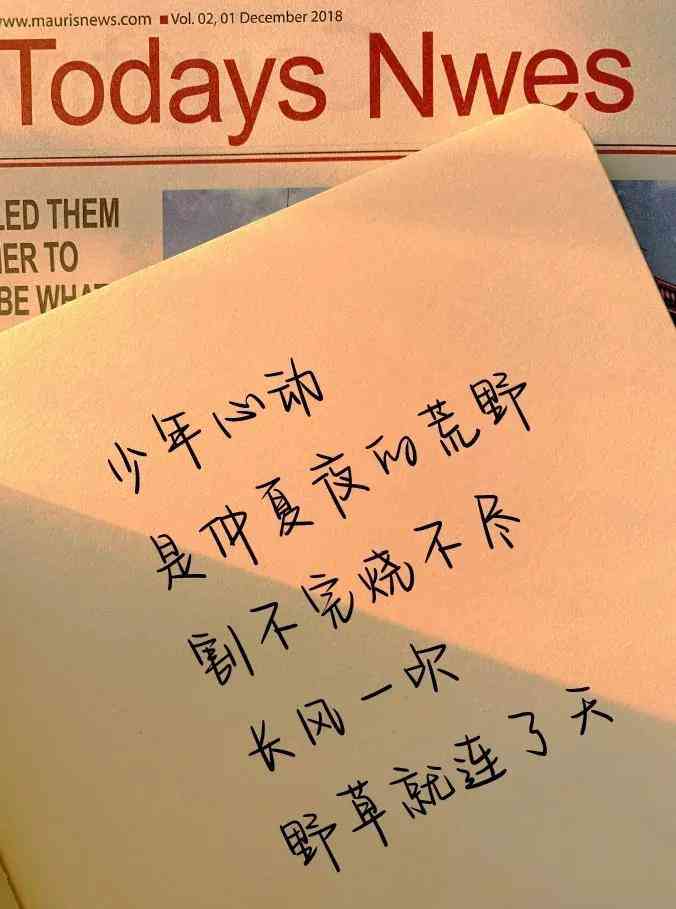 www.maurisnews.com ■ Vol. 02, 01 December 2018
Todays Nwes
LED THEM
TO
BE
少年心动
是仲夏夜的荒野
割不完烧不尽
长风一吹
野草就连了天